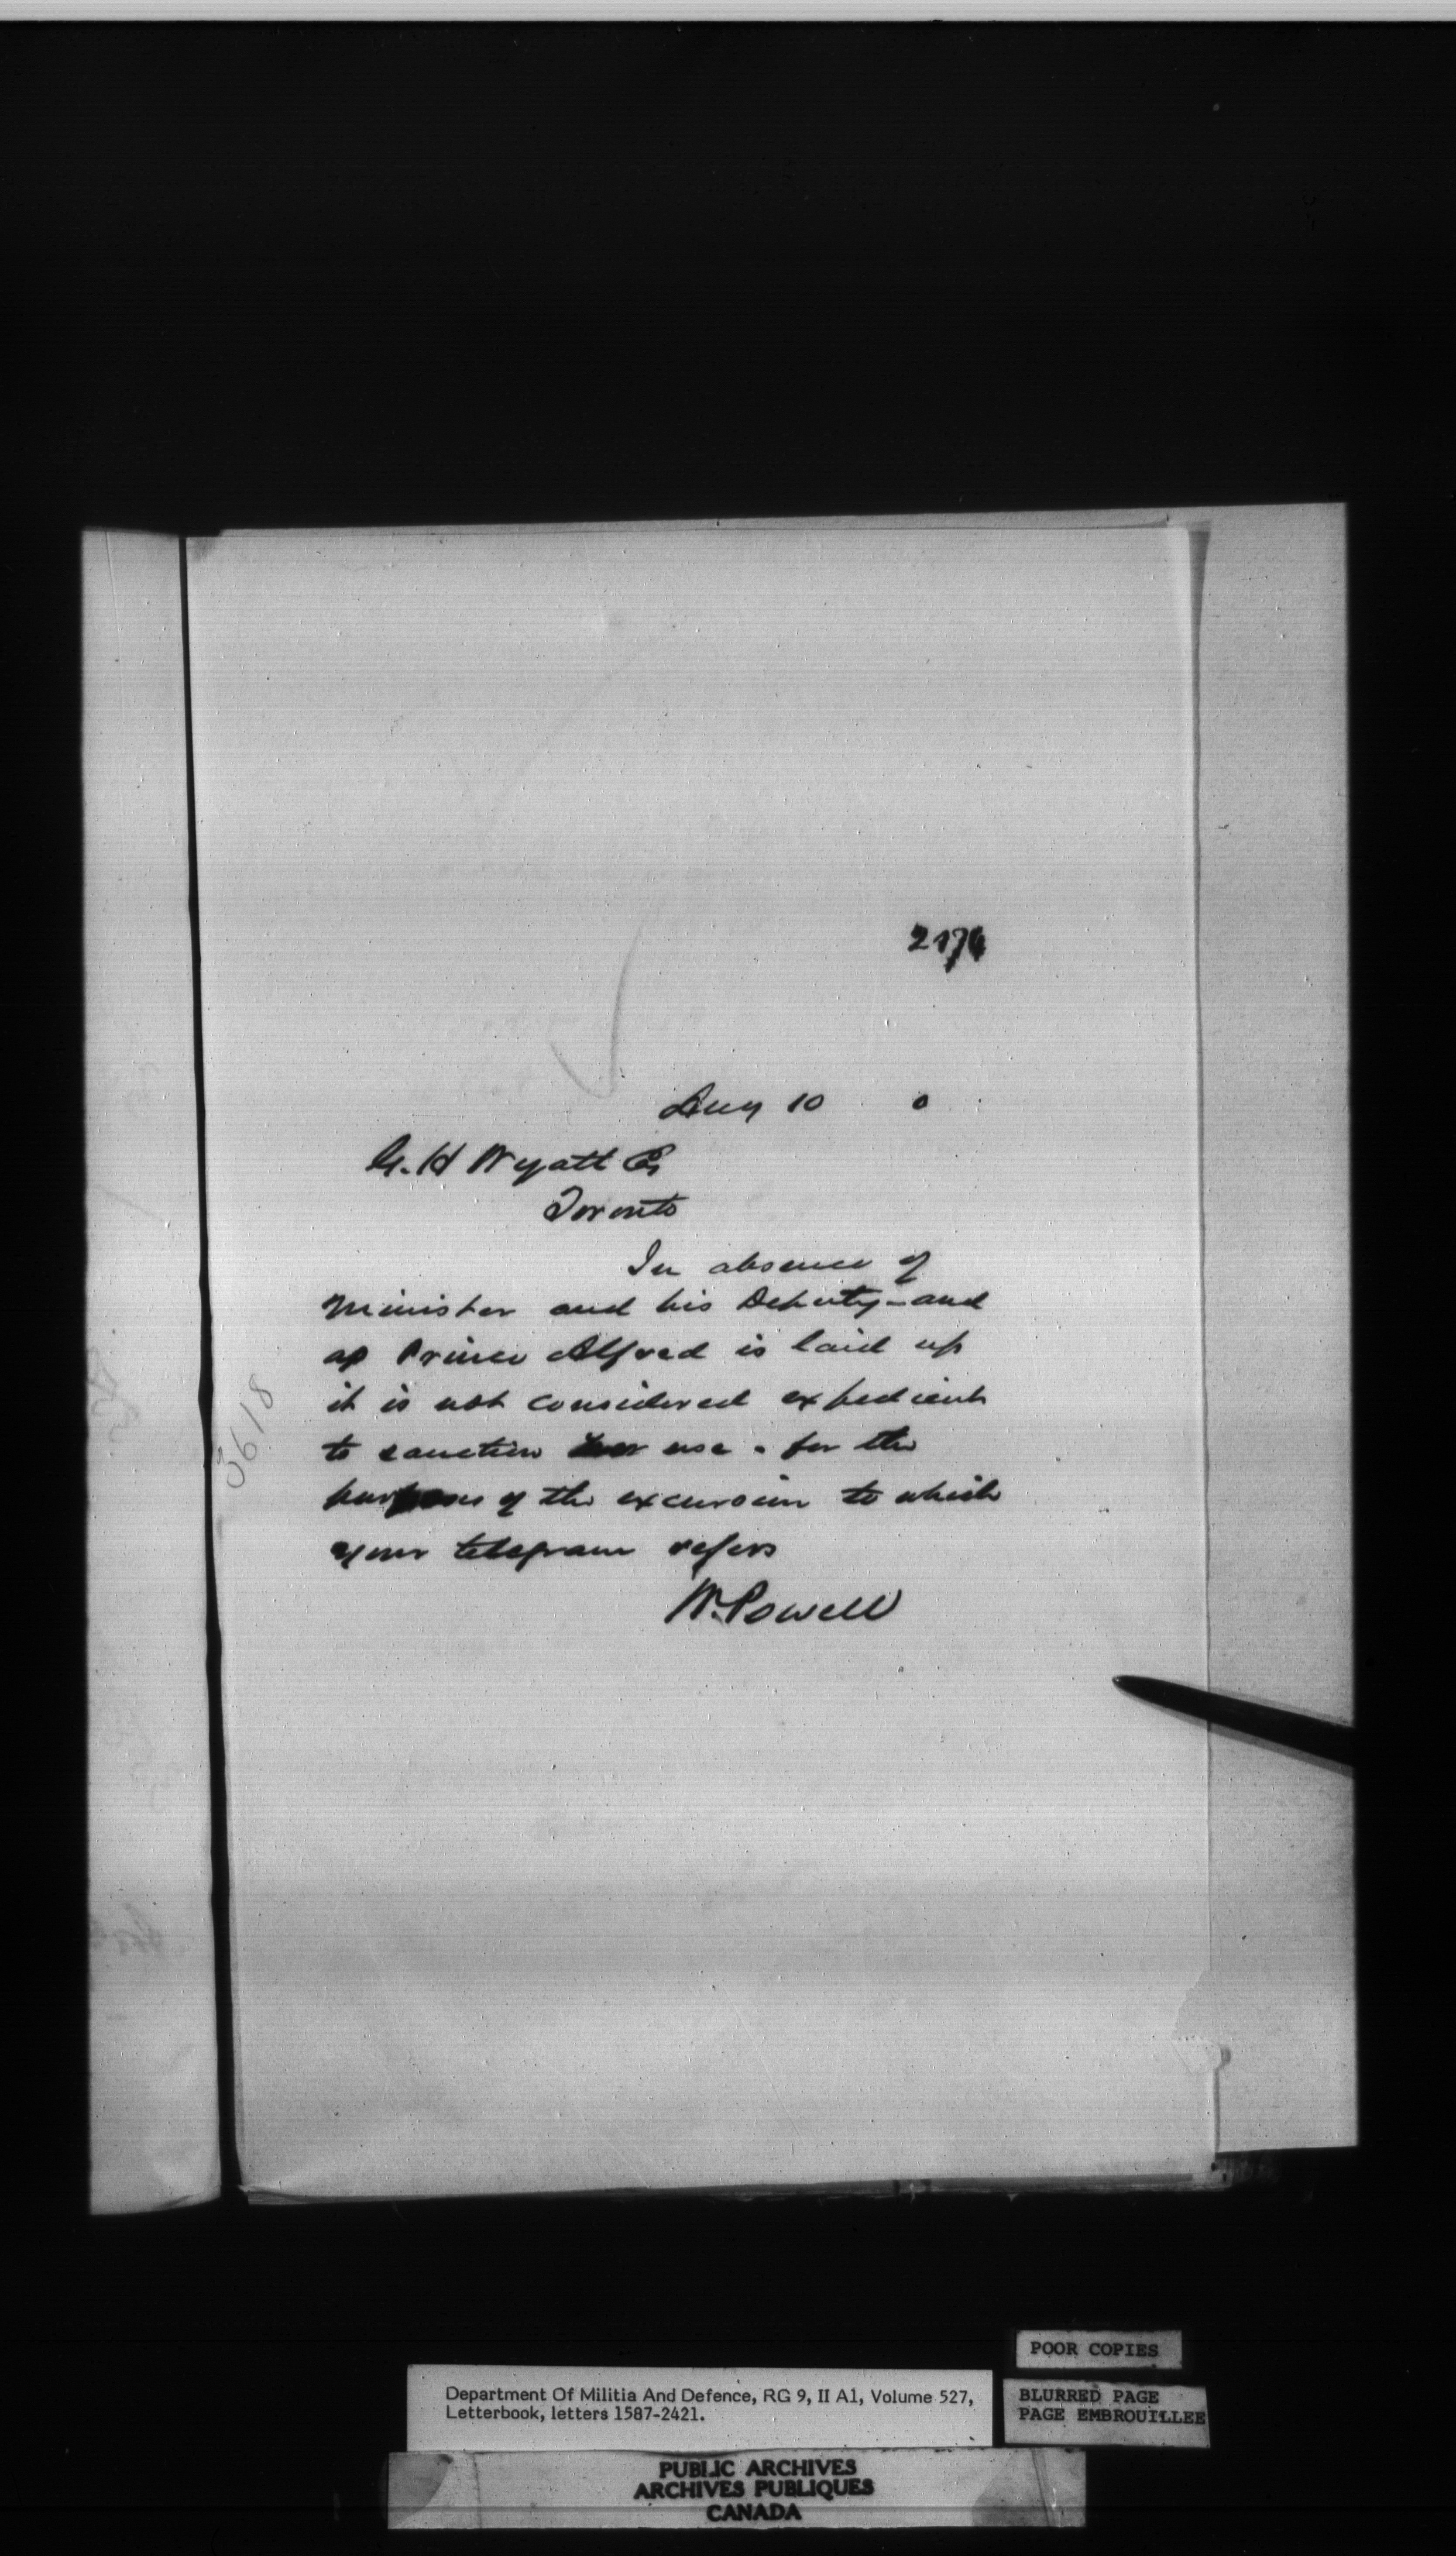 2174
Aug 10 0
G. H Wyatt Es
Toronto
In absence of
Minister and his Deputy - and
as Prince Alfred is laid up
it is not considered expedient
to sanction her use - for the
purposes of the excursion to which
your telegram refers
W. Powell
3618
POOR COPIES
BLURRED PAGE
PAGE EMBROUILLEE
Department Of Militia And Defence, RG 9, II A1, Volume 527,
Letterbook, letters 1587-2421.
PUBLIC ARCHIVES
ARCHIVES PUBLIQUES
CANADA